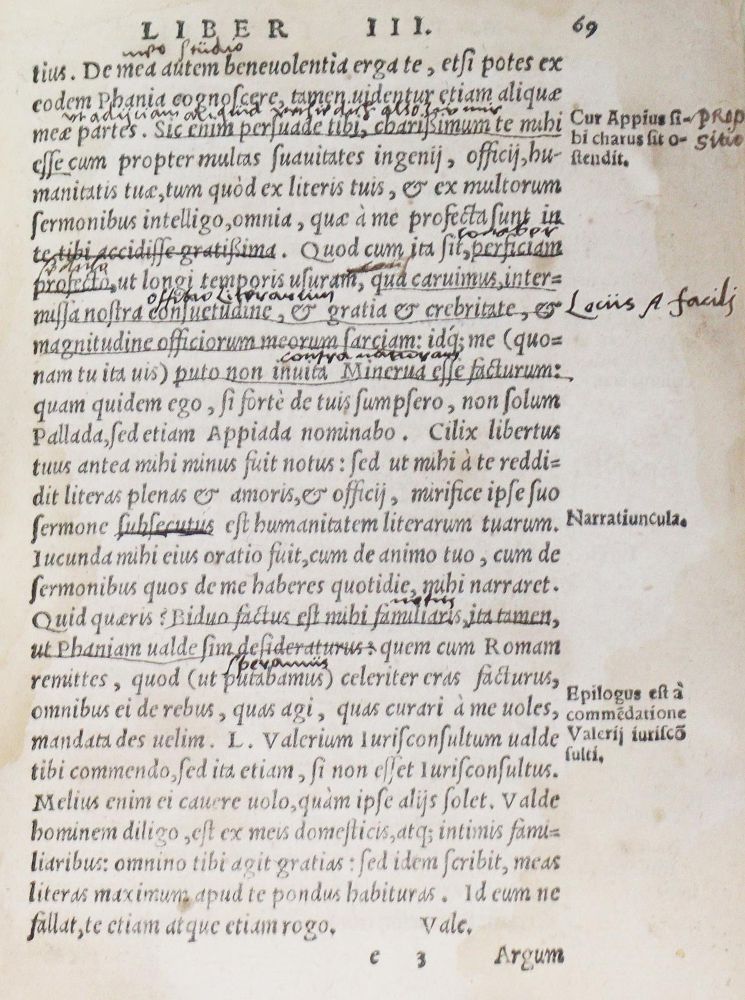 LIBER III. 69
meo studio
tius. De mea autem beneuolentia erga te, etsi potes ex
eodem Phania cognoscere, tamen uidentur etiam aliquæ
meæ partes. Sic enim persuade tibi, charißimum te mihi
Cur Appius si-
bi charus sit o-
stendit.
prop
sitio
esse cum propter multas suauitates ingenij, officij, hu-
manitatis tuæ, tum quòd ex literis tuis, & ex multorum
sermonibus intelligo, omnia, quæ à me profecta sunt in
te tibi accidisse gratißima. Quod cum ita sit, perficiam
profectò, ut longi temporis usuram, qua caruimus, inter=
officio literarum
missa nostra consuetudine, & gratia & crebritate, &
Locus A facili
magnitudine officiorum meorum sarciam: idq́; me (quo=
contra naturam
nam tu ita uis) puto non inuita Minerua esse facturum:
quam quidem ego, si fortè de tuis sumpsero, non solum
Pallada, sed etiam Appiada nominabo. Cilix libertus
tuus antea mihi minus fuit notus: sed ut mihi à te reddi=
dit literas plenas & amoris, & officij, mirifice ipse suo
sermone subsecutus est humanitatem literarum tuarum.
Narratiuncula.
Iucunda mihi eius oratio fuit, cum de animo tuo, cum de
sermonibus quos de me haberes quotidie, mihi narraret.
notus
Quid quæris? Biduo factus est mihi familiaris, ita tamen,
ut Phaniam ualde sim desideraturus: quem cum Romam
speramus
remittes, quod (ut putabamus) celeriter eras facturus,
omnibus ei de rebus, quas agi, quas curari à me uoles,
Epilogus est à
commēdatione
Valerij iuriscō
sulti.
mandata des uelim. L. Valerium Iurisconsultum ualde
tibi commendo, sed ita etiam, si non esset Iurisconsultus.
Melius enim ei cauere uolo, quàm ipse alijs solet. Valde
hominem diligo, est ex meis domesticis, atq; intimis fami=
liaribus: omnino tibi agit gratias: sed idem scribit, meas
literas maximum apud te pondus habituras. Id eum ne
fallat, te etiam atque etiam rogo. Vale.
e 3 Argum